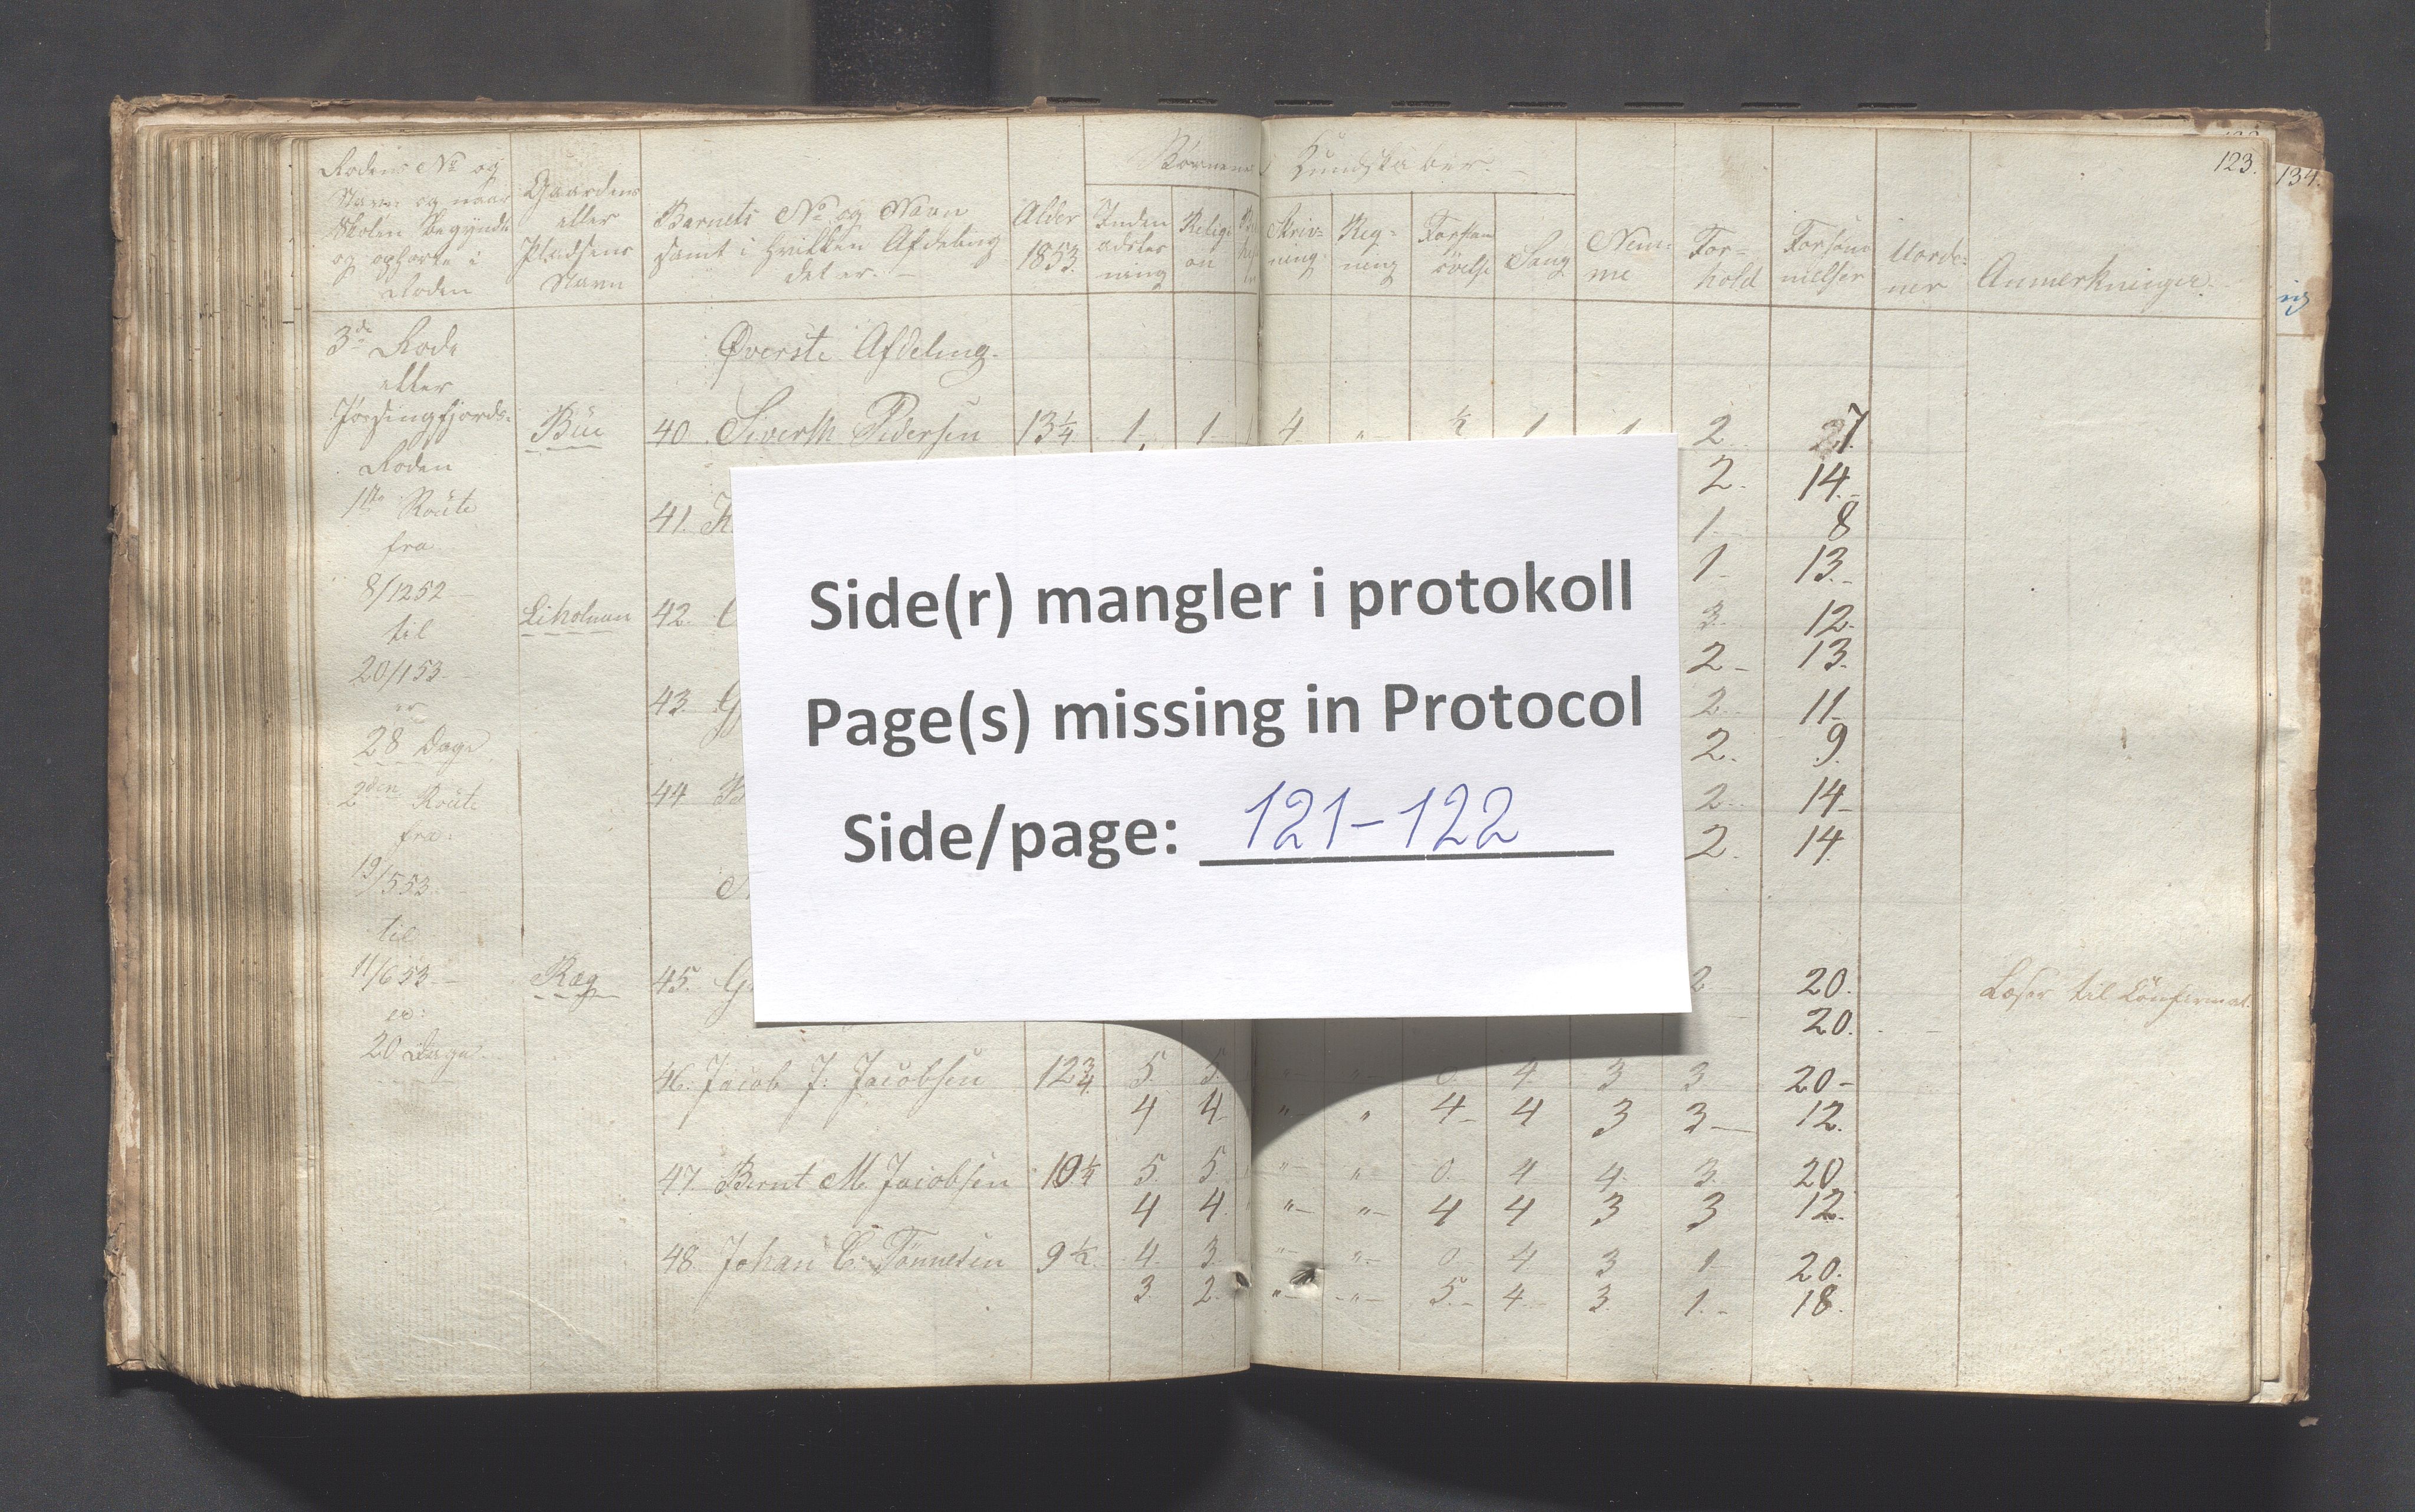 123.
134.
Rodens No og
Navn og naar
Skolen begyndte
og ophørte i
Roden
Gaardens
eller
Pladsens
Navn
Barnets No og Navn
samt i hvilken Afdeling
det er. -
Alder
1853.
Børnenes Kundskaber.
Inden
adslæs
ning
Religi
on
Skriv=
ning
Reg=
ning
Forstan
Sang
Nem=
me
For=
hold
Forsøm
melser
Uorde=
ner
Anmerkninger.
3de Rode
eller
Jøssingfjords.
Roden
1ste Route
fra
8/12 52
til
20/1 53
er
28 Dage
2den Route
fra:
19/5 53
til
11/6 53
er:
20 Dage
Øverste Afdeling.
Bue 40. Siverth Pedersen 13 1/4 1. 1. 4 „ ½ 1 1 2 27.
2. 14.
41.
1. 8
1 13.
Liholmen 42.
3. 12.
2 13.
43.
2. 11
2. 9.
44.
2. 14
2. 14
Ræg 45.
2 20. Læser til Confirmat.
20.
46. Jacob J. Jacobsen 12 3/4 5. 5. „ „ 0. 4. 3 3 20
4 4 „ „ 4 4 3 3 12.
47. Bernt M. Jacobsen 10 1/4 5. 5 „ „ 0. 4 4. 3. 20
4 4. „ „ 4 4 3 3 12.
48. Johan C. Tønnesen 9 ½ 4. 3. „ „ 0 4 3 1 20.
3. 2. „ „ 5. 4. 3. 1. 18.
Side(r) mangler i protokoll
Page(s) missing in Protocol
Side/page: 121-122